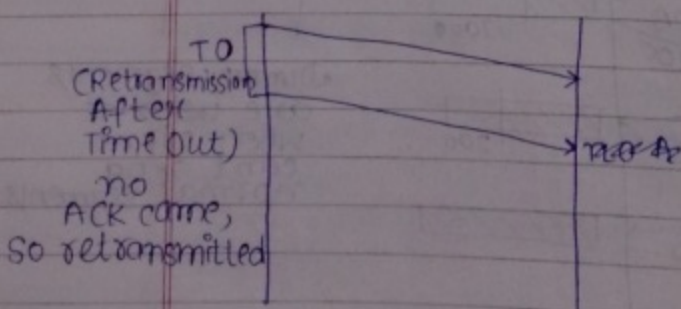 TO
(Retransmission
After
Time out)
no
ACK came,
so retransmitted